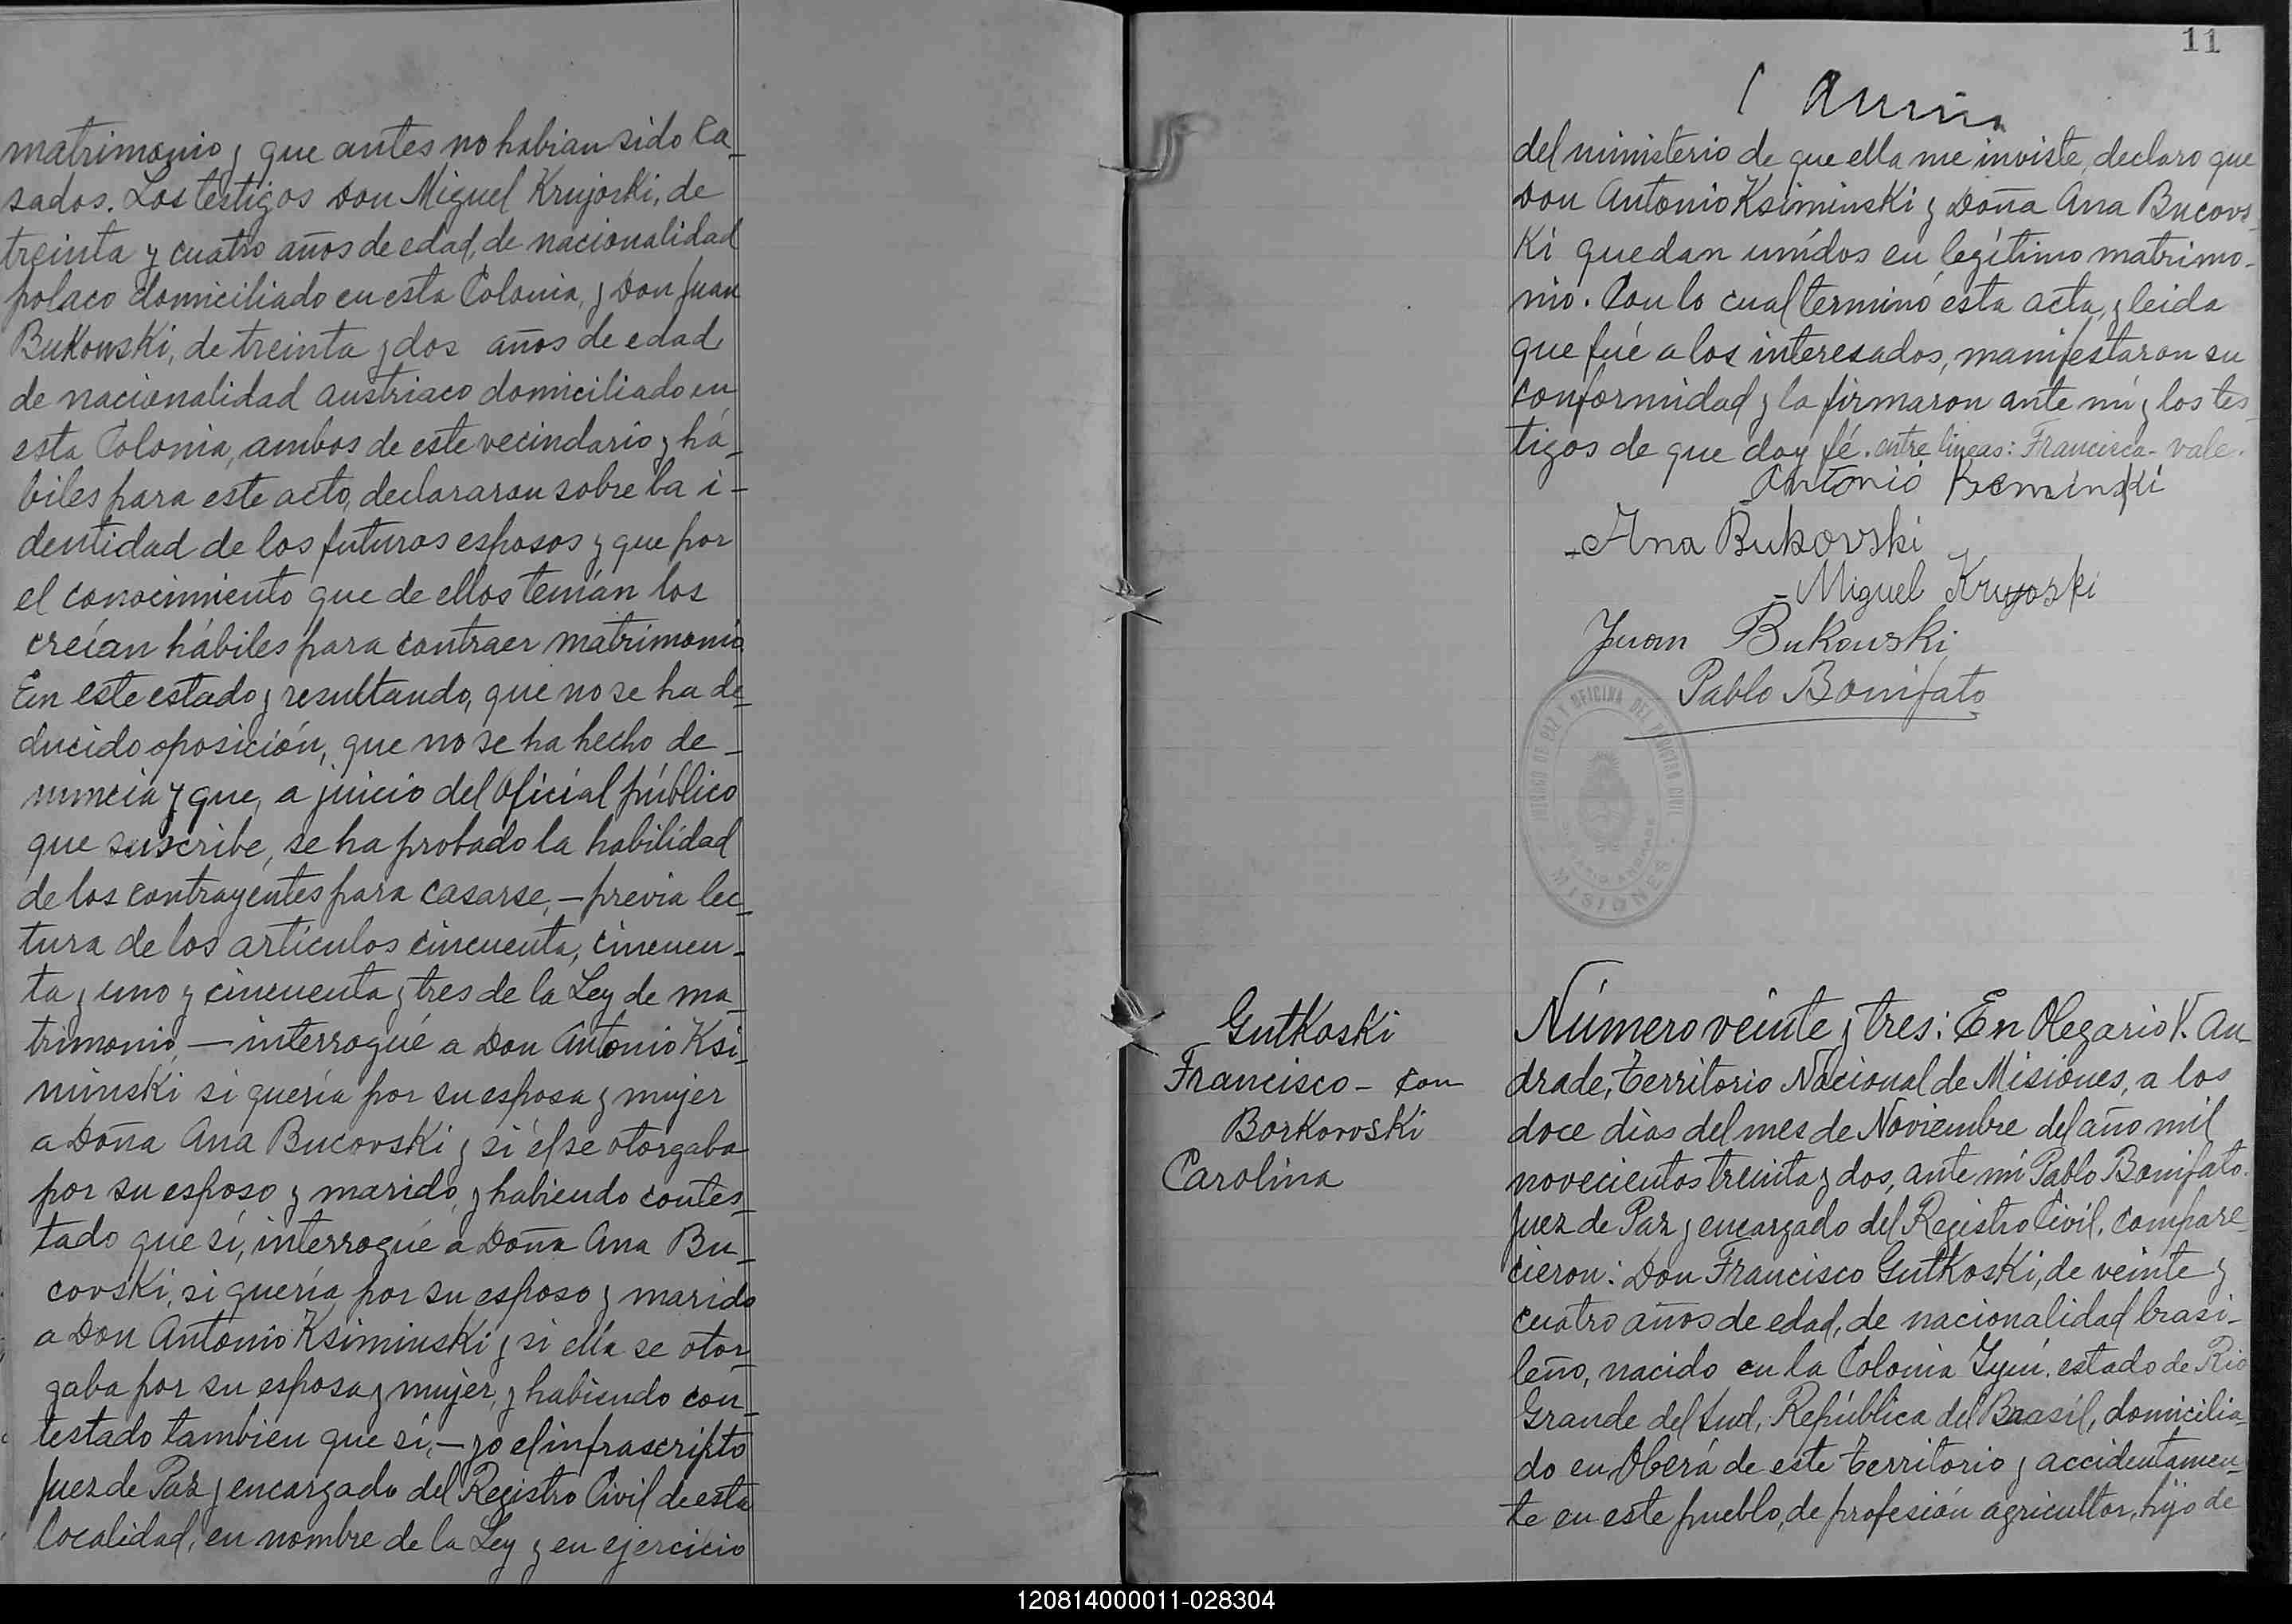 matrimonio y que antes no habian sido ca_
sados. Los testigos Don Miguel Krujoski, de
treinta y cuatro años de edad, de nacionalidad
polaco domiciliado en esta Colonia, y Don Juan
Bukowski, de treinta y dos años de edad
de nacionalidad austriaco domiciliado en
esta Colonia, ambos de este vecindario y há_
biles para este acto, declararon sobre la i-
dentidad de los futuros esposos y que por
el conocimiento que de ellos tenían los
creían hábiles para contraer matrimonio
En este estado y resultando, que no se ha de_
ducido oposición, que no se ha hecho de_
nuncia y que, a juicio del oficial público
que suscribe, se ha probado la habilidad
de los contrayentes para casarse, — previa lec_
tura de los artículos cincuenta, cincuen-
ta y uno y cincuenta y tres de la Ley de ma_
trimonio, — interrogué a Don Antonio Ksi_
minski si quería por su esposa y mujer
a Doña Ana Bucovski y si él se otorgaba
por su esposo y marido, y habiendo contes_
tado que sí, interrogué a Doña Ana Bu_
covski, si quería por su esposo y marido
a Don Antonio Ksiminski y si ella se otor_
gaba por su esposa y mujer, y habiendo con_
testado tambien que sí, — yo el infrascripto
Juez de Paz y encargado del Registro Civil de esta
localidad, en nombre de la Ley y en ejercicio
11
del ministerio de que ella me inviste, declaro que
Don Antonio Ksiminski y Doña Ana Bucovs_
Ki quedan unídos en legítimo matrimo-
nio. Con lo cual terminó esta acta, y leida
que fué a los interesados, manifestaron su
conformidad y la firmaron ante mí y los tes_
tigos de que doy fé. entre lineas: Francisca - vale.
Antonio
Ana Bukovski
Miguel Kryoski
Juan Bukowski
Pablo Bonifato
JUZGADO DE PAZ Y OFICINA DEL REGISTRO CIVIL
MISIONES
Gutkoski
Francisco - con
Borkovoski
Carolina
Número veinte y tres: En Olegario V. An_
drade, territorio Nacional de Misiones, a los
doce dias del mes de Noviembre del año mil
novecientos treinta y dos, ante mí Pablo Bonifato.
Juez de Paz y encargado del Registro Civil, compare_
cieron: Don Francisco Gutkoski, de veinte y
cuatro años de edad, de nacionalidad brasi_
leño, nacido en la Colonia Yyuí, estado de Rio
Grande del Sud, República del Brasil, domicilia_
do en Oberá de este territorio y accidentamen_
te en este pueblo, de profesión agricultor, hijo de
120814000011-028304